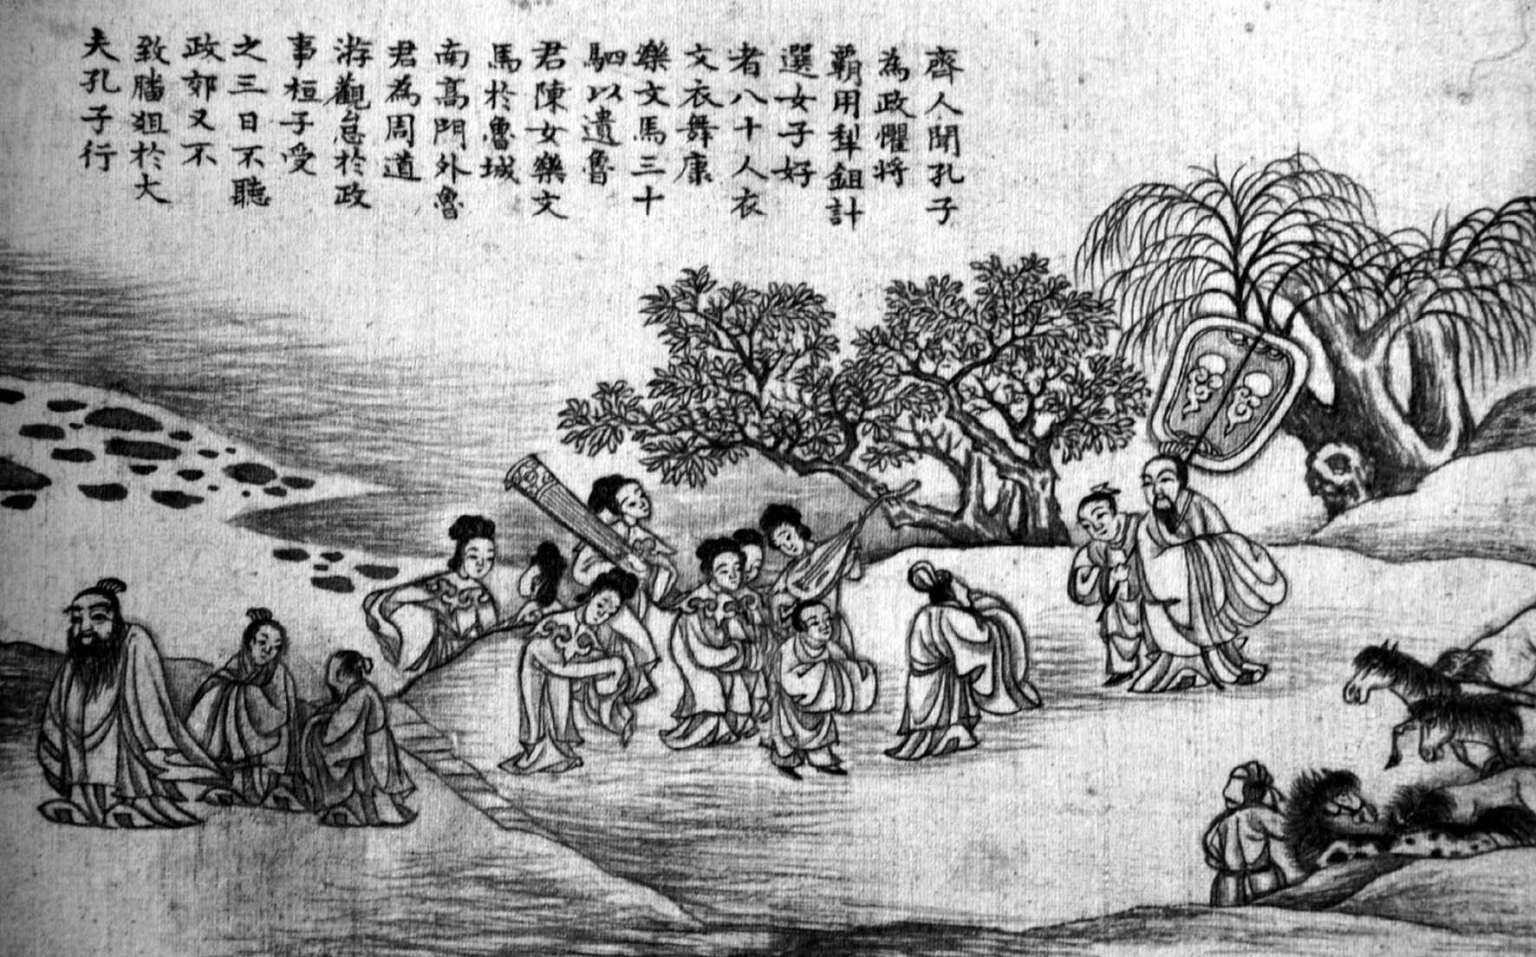 齊人聞孔子
為政懼將
霸用犁鉏計
選女子好
者八十人衣
文衣舞康
樂文馬三十
駟以遺魯
君陳女樂文
馬於魯城
南高門外魯
君為周道
游觀怠於政
事桓子受
之三日不聽
政郊又不
致膰俎於大
夫孔子行